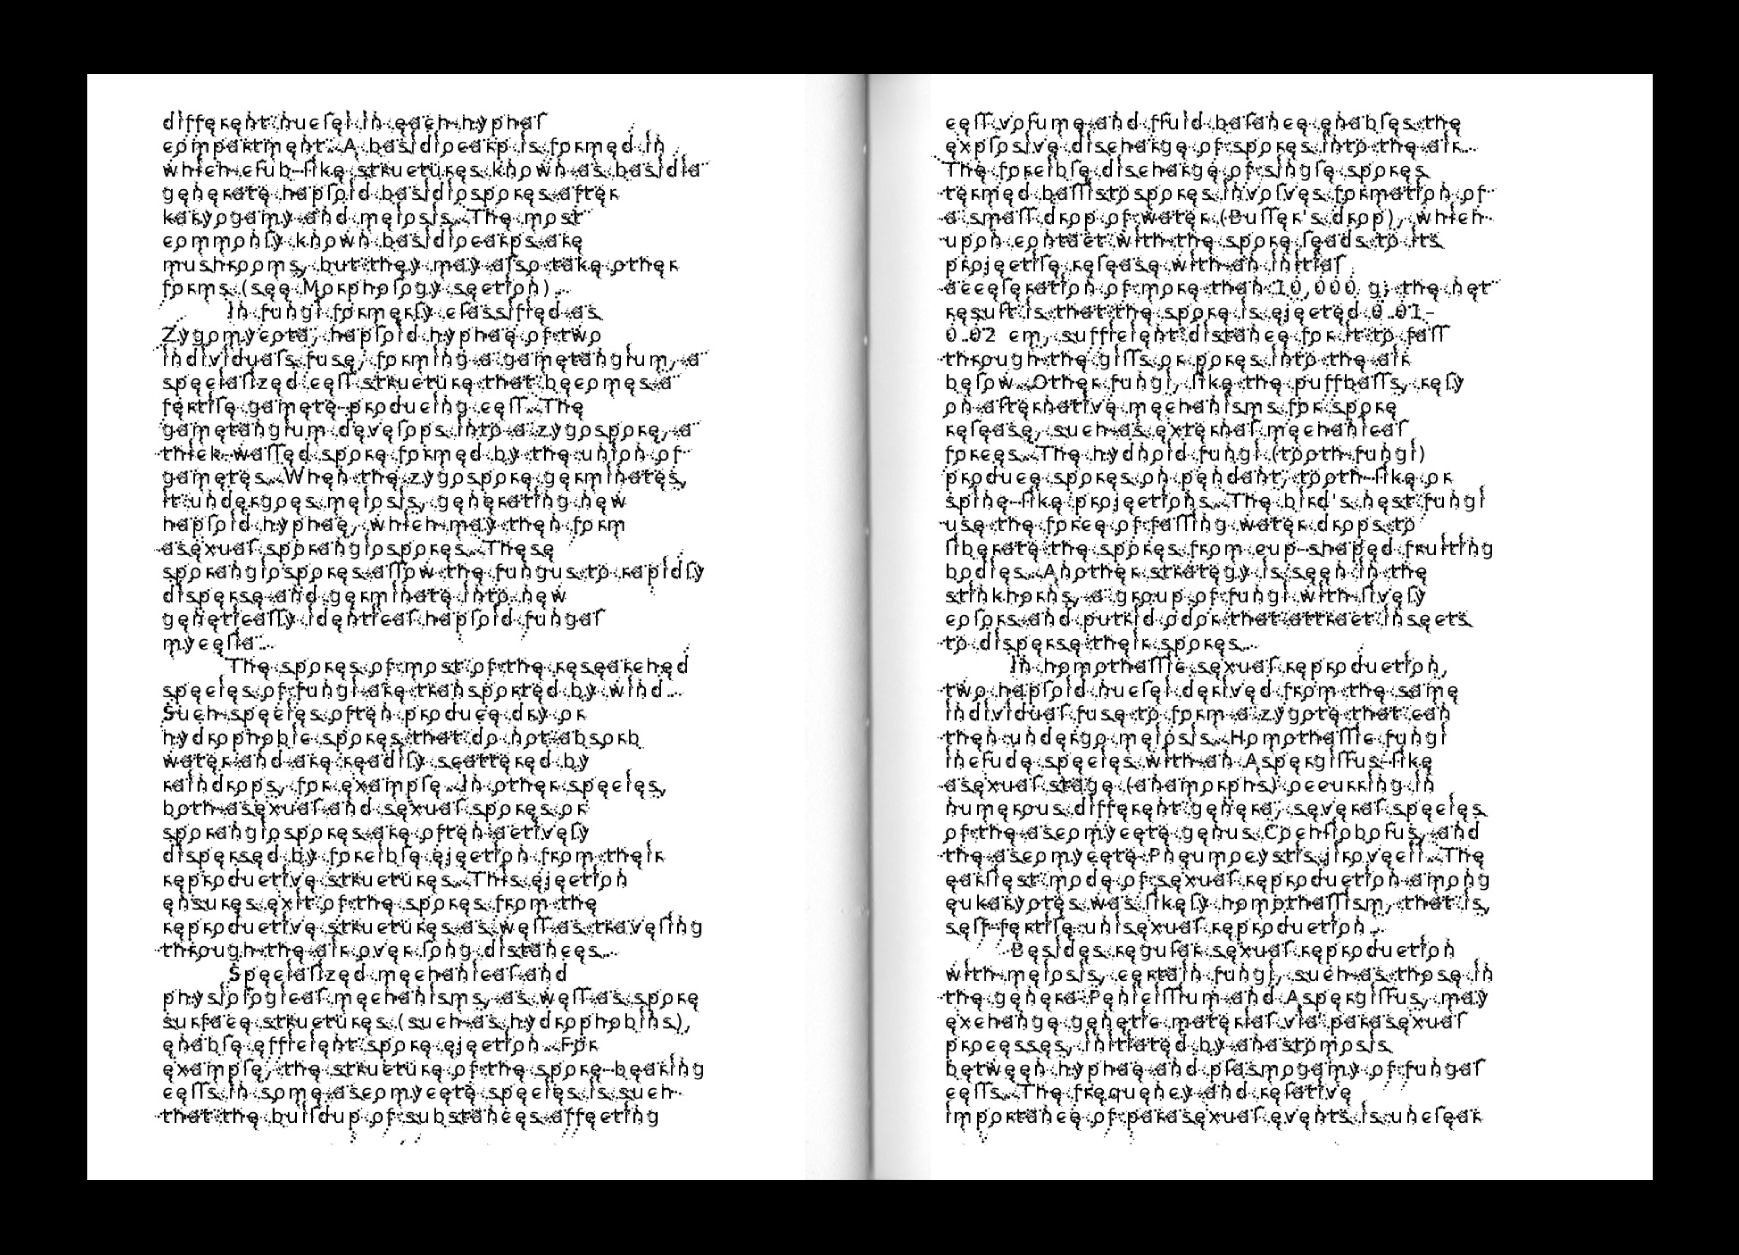 different nuclei in each hyphal
compartment. A basidiocarp is formed in
which club-like structures known as basidia
generate haploid basidiospores after
karyogamy and meiosis. The most
commonly known basidiocarps are
mushrooms, but they may also take other
forms (see Morphology section).
In fungi formerly classified as
Zygomycota, haploid hyphae of two
individuals fuse, forming a gametangium, a
specialized cell structure that becomes a
fertile gamete-producing cell. The
gametangium develops into a zygospore, a
thick-walled spore formed by the union of
gametes. When the zygospore germinates,
it undergoes meiosis, generating new
haploid hyphae, which may then form
asexual sporangiospores. These
sporangiospores allow the fungus to rapidly
disperse and germinate into new
genetically identical haploid fungal
mycelia.
The spores of most of the researched
species of fungi are transported by wind.
Such species often produce dry or
hydrophobic spores that do not absorb
water and are readily scattered by
raindrops, for example. In other species,
both asexual and sexual spores or
sporangiospores are often actively
dispersed by forcible ejection from their
reproductive structures. This ejection
ensures exit of the spores from the
reproductive structures as well as traveling
through the air over long distances.
Specialized mechanical and
physiological mechanisms, as well as spore
surface structures (such as hydrophobins),
enable efficient spore ejection. For
example, the structure of the spore-bearing
cells in some ascomycete species is such
that the buildup of substances affecting
cell volume and fluid balance enables the
explosive discharge of spores into the air.
The forcible discharge of single spores
termed ballistospores involves formation of
a small drop of water (Buller's drop), which
upon contact with the spore leads to its
projectile release with an initial
acceleration of more than 10,000 g; the net
result is that the spore is ejected 0.01–
0.02 cm, sufficient distance for it to fall
through the gills or pores into the air
below. Other fungi, like the puffballs, rely
on alternative mechanisms for spore
release, such as external mechanical
forces. The hydnoid fungi (tooth fungi)
produce spores on pendant, tooth-like or
spine-like projections. The bird's nest fungi
use the force of falling water drops to
liberate the spores from cup-shaped fruiting
bodies. Another strategy is seen in the
stinkhorns, a group of fungi with lively
colors and putrid odor that attract insects
to disperse their spores.
In homothallic sexual reproduction,
two haploid nuclei derived from the same
individual fuse to form a zygote that can
then undergo meiosis. Homothallic fungi
include species with an Aspergillus-like
asexual stage (anamorphs) occurring in
numerous different genera, several species
of the ascomycete genus Cochliobolus, and
the ascomycete Pneumocystis jirovecii. The
earliest mode of sexual reproduction among
eukaryotes was likely homothallism, that is,
self-fertile unisexual reproduction.
Besides regular sexual reproduction
with meiosis, certain fungi, such as those in
the genera Penicillium and Aspergillus, may
exchange genetic material via parasexual
processes, initiated by anastomosis
between hyphae and plasmogamy of fungal
cells. The frequency and relative
importance of parasexual events is unclear